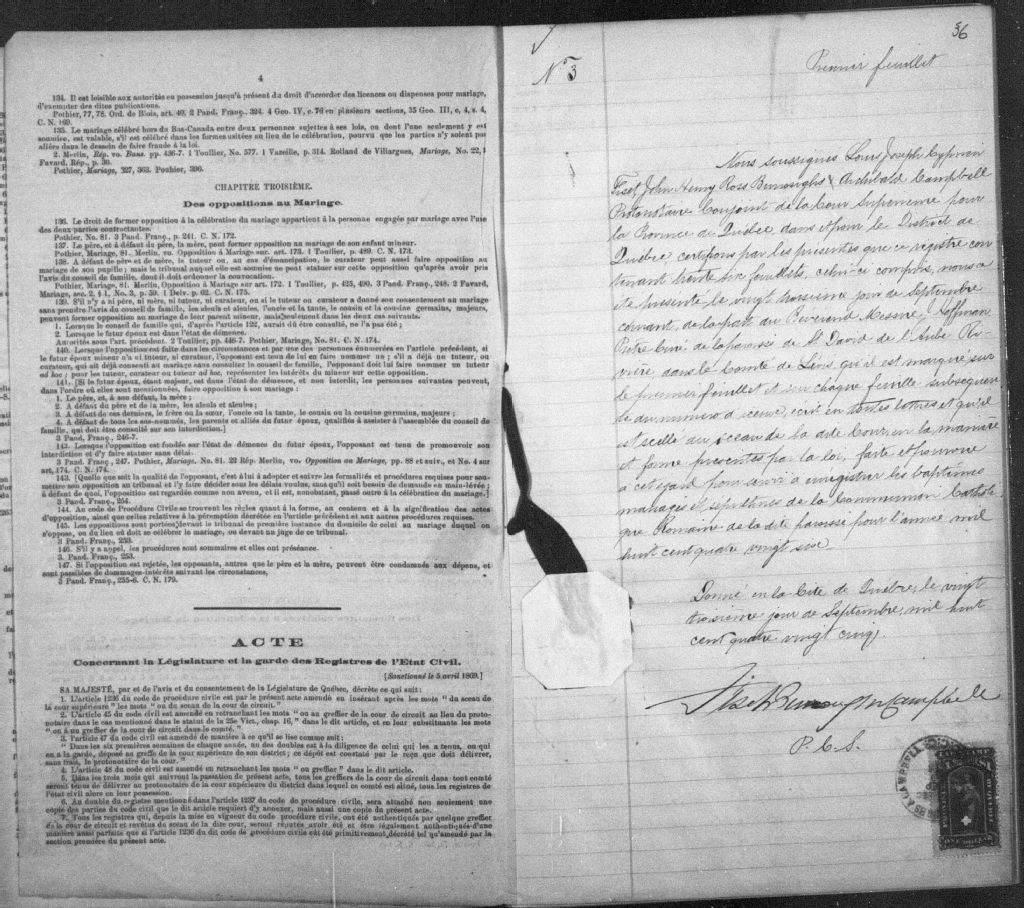 4
134. Il est loisible aux autorités en possession jusqu'à présent du droit d'accorder des licences ou dispenses pour mariage,
d'exempter des dites publications.
Pothier, 77, 78. Ord. de Blois, art. 40. 2 Pand. Franç., 324. 4 Geo. IV, c. 76 en plusieurs sections, 35 Geo. III, c, 4, s. 4,
C. N. 169.
135. Le mariage célébré hors du Bas-Canada entre deux personnes sujettes à ses lois, ou dont l'une seulement y est
soumise, est valable, s'il est célébré dans les formes usitées au lieu de la célébration, pourvu que les parties n'y soient pas
allées dans le dessein de faire fraude à la loi.
2. Merlin, Rép. vo. Bans. pp. 436-7. 1 Toullier, No. 577. 1 Vazeille, p. 314. Rolland de Villargues, Mariage, No. 22,
Favard, Rép., p. 36.
Pothier, Mariage, 327, 363. Pouhier, 396.
CHAPITRE TROISIÈME.
Des oppositions au Mariage.
136. Le droit de former opposition à la célébration du mariage appartient à la personne engagée par mariage avec l'une
des deux parties contractantes.
Pothier, No. 81. 3 Pand. Franç., p. 241. C. N. 172.
137. Le père, et à défaut du père, la mère, peut former opposition au mariage de son enfant mineur.
Pothier, Mariage, 81. Merlin, vo. Opposition à Mariage sur. art. 173. 1 Toullier, p. 489. C. N. 173.
138. A défaut de père et de mère, le tuteur ou, au cas d'émancipation, le curateur peut aussi faire opposition au
mariage de son pupille; mais le tribunal auquel elle est soumise ne peut statuer sur cette opposition qu'après avoir pris
l'avis du conseil de famille, dont il doit ordonner la convocation.
Pothier, Mariage, 81. Merlin, Opposition à Mariage sur art. 172. 1 Toullier, p. 425, 490. 3 Pand. Franç., 248. 2 Favard,
Mariage, sec. 2, § 1, No. 3, p. 59. 1 Delv. p. 62. C. N. 175.
139. S'il n'y a ni père, ni mère, ni tuteur, ni curateur, ou si le tuteur ou curateur a donné son consentement au mariage
sans prendre l'avis du conseil de famille, les aïeuls et aïeules, l'oncle et la tante, le cousin et la cousine germains, majeurs,
peuvent former opposition au mariage de leur parent mineur, mais seulement dans les deux cas suivants.
1. Lorsque le conseil de famille qui, d'après l'article 122, aurait dû être consulté, ne l'a pas été;
2. Lorsque le futur époux est dans l'état de démence.
Autorités sous l'art. précédent. 2 Toullier, pp. 446-7. Pothier, Mariage, No. 81. C. N. 174.
140. Lorsque l'opposition est faite dans les circonstances et par une des personnes énoncées en l'article précédent, si
le futur époux mineur n'a ni tuteur, ni curateur, l'opposant est tenu de lui en faire nommer un; s'il a déjà un tuteur, ou
curateur, qui ait déjà consenti au mariage sans consulter le conseil de famille, l'opposant doit lui faire nommer un tuteur
ad hoc; pour les tuteur, curateur ou tuteur ad hoc, représenter les intérêts du mineur sur cette opposition.
141. [Si le futur époux, étant majeur, est dans l'état de démence, et non interdit, les personnes suivantes peuvent,
dans l'ordre où elles sont mentionnées, faire opposition à son mariage:
1. Le père, et, à son défaut, la mère;
2. A défaut du père et de la mère, les aïeuls et aïeules;
3. A défaut de ces derniers, le frère ou la sœur, l'oncle ou la tante, le cousin ou la cousine germains, majeurs;
4. A défaut de tous les sus-nommés, les parents et alliés du futur époux, qualifiés à assister à l'assemblée du conseil de
famille, qui doit être consulté sur son interdiction.]
3 Pand. Franç., 246-7.
142. Lorsque l'opposition est fondée sur l'état de démence du futur époux, l'opposant est tenu de promouvoir son
interdiction et d'y faire statuer sans délai.
3 Pand. Franç., 247. Pothier, Mariage, No. 81. 22 Rép Merlin, vo. Opposition au Mariage, pp. 88 et suiv., et No. 4 sur
art. 174. C. N. 174.
143. [Quelle que soit la qualité de l'opposant, c'est à lui à adopter et suivre les formalités et procédures requises pour sou-
mettre son opposition au tribunal et l'y faire décider sous les délais voulus, sans qu'il soit besoin de demande en main-levée;
à défaut de quoi, l'opposition est regardée comme non avenu, et il est, nonobstant, passé outre à la célébration du mariage.]
3 Pand. Franç., 254.
144. Au code de Procédure Civile se trouvent les règles quant à la forme, au contenu et à la signification des actes
d'opposition, ainsi que celles relatives à la péremption décrétée en l'article précédent et aux autres procédures requises.
145. Les oppositions sont portées devant le tribunal de première instance du domicile de celui au mariage duquel on
s'oppose, ou du lieu où doit se célébrer le mariage, ou devant un juge de ce tribunal.
3 Pand. Franç., 253.
146. S'il y a appel, les procédures sont sommaires et elles ont préséance.
3. Pand. Franç., 253.
147. Si l'opposition est rejetée, les opposants, autres que le père et la mère, peuvent être condamnés aux dépens, et
sont passibles de dommages-intérêts suivant les circonstances,
3 Pand. Franç., 255-6. C. N. 179.
ACTE
Concernant la Législature et la garde des Registres de l'Etat Civil.
[Sanctionné le 5 avril 1869.]
SA MAJESTÉ, par et de l'avis et du consentement de la Législature de Québec, décrète ce qui suit:
1. L'article 1236 du code de procédure civile est par le présent acte amendé en insérant après les mots "du sceau de
la cour supérieure" les mots "ou du sceau de la cour de circuit."
2. L'article 45 du code civil est amendé en retranchant les mots "ou au greffier de la cour de circuit au lieu du proto-
notaire dans le cas mentionné dans le statut de la 25e Vict., chap. 16," dans le dit article, et en leur substituant les mots
"ou à un greffier de la cour de circuit dans le comté."
3. l'article 47 du code civil est amendé de manière à ce qu'il se lise comme suit:
"Dans les six premières semaines de chaque année, un des doubles est à la diligence de celui qui les a tenus, ou qui
en a la garde, déposé au greffe de la cour supérieure de son district; ce dépôt est constaté par le reçu que doit délivrer,
sans frais, le protonotaire de la cour."
4. L'article 48 du code civil est amendé en retranchant les mots "ou greffier" dans le dit article.
5. Dans les trois mois qui suivront la passation de présent acte, tous les greffiers de la cour de circuit dans tout comté
seront tenus de délivrer au protonotaire de la cour supérieure du district dans lequel ce comté est situé, tous les registres de
l'état civil alors en leur possession.
6. Au double du registre mentionné dans l'article 1237 du code de procédure civile, sera attaché non seulement une
copie des parties du code civil que le dit article requiert d'y annexer, mais aussi une copie du présent acte.
7. Tous les registres qui, depuis la mise en vigueur du code procédure civile, ont été authentiqués par quelque greffier
de la cour de circuit et revêtus du sceau de la dite cour, seront réputés avoir été et être légalement authentiqués d'une
manière aussi parfaite que si l'article 1236 du dit code de procédure civile eût été primitivement décrété tel qu'amendé par la
section première du présent acte.
36
No 3
Premier feuillet
Nous soussignés Louis Joseph Cyprien
Fiset, John Henry Ross Burroughs & Archibald Campbell
Protonotaire Conjoint de la Cour Superieure pour
la Province de Québec, dans et pour le District de
Québec certifions par les présentes que ce registre con
tenant trente six feuillets, celui-ci compris, nous a
été présenté le vingt troisième jour de Septembre
courant, de la part du Reverend Messire Hoffman
Ptre Curé de la paroisse de St David de l'Aube Ri-
vière dans le Comté de Lévis, qu'il est marqué sur
le premier feuillet et sur chaque feuille subsequen
te du numero d'icelui, écrit en toutes lettres et qu'il
est scellé du sceau de la dite Cour, en la manière
et forme prescrites par la loi, faite et promue
à cet égard pour servir à enregistrer les baptêmes
mariages et sépultures de la Communion Catholi
que Romaine de la dite paroisse pour l'année mil
huit cent quatre vingt six
Donné en la Cité de Québec, le vingt
troisième jour de Septembre, mil huit
cent quatre vingt cinq.
Fiset Burroughs Campbell
P. C. S.
ONE DOLLAR